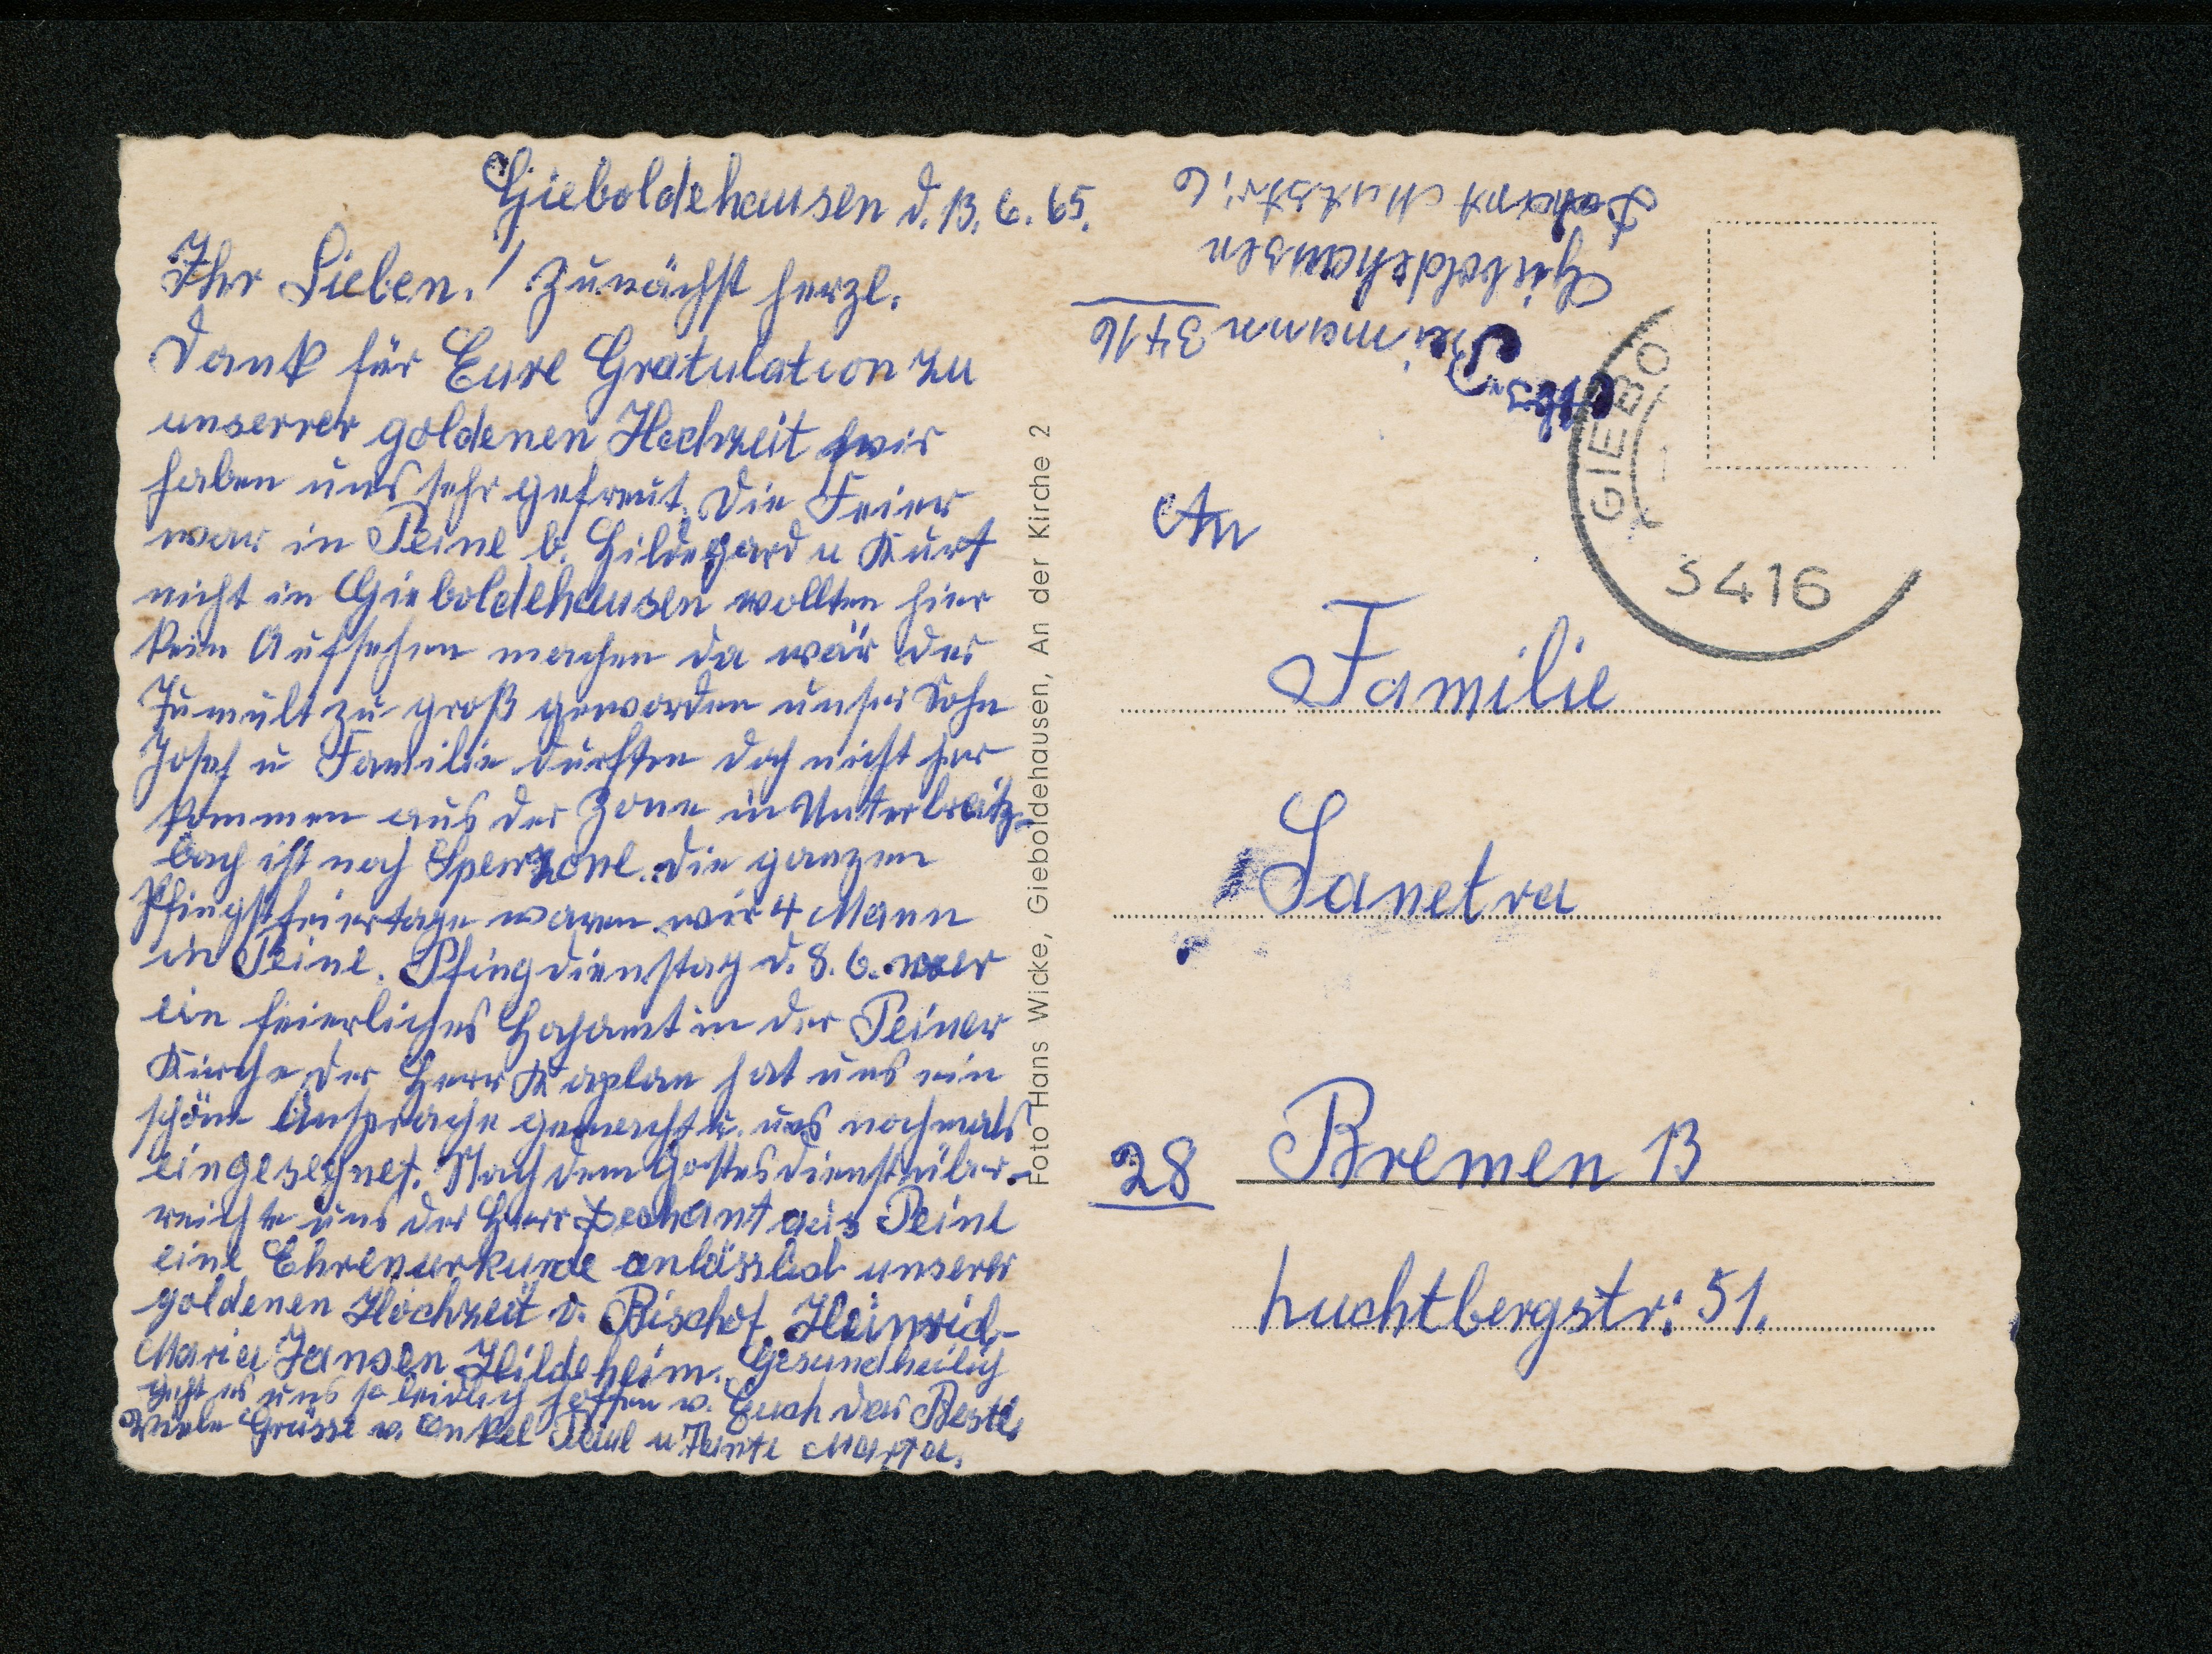 Gieboldehausen d. 13. 6. 65.
Ihr Lieben! Zunächst herzl.
Dank für Eure Gratulation zu
unserrer goldenen Hochzeit wir
haben uns sehr gefreut. Die Feier
war in Peine b. Hildegard u Kurt
nicht in Gieboldehausen wollten hier
kein Aufsehen machen da wär der
Tumult zu groß geworden unser Sohn
Josef u Familie durften doch nicht her
kommen aus der Zone in
bach ist noch Sperrzone. Die ganzen
Pfingstfeiertage waren wir 4 Mann
in Peine. Pfingdienstag d. 8. 6. war
ein feierliches Hochamt in der Peiner
Kirche der Herr Kaplan hat uns ein
schöne Ansprache gemacht u. uns nochmals
eingesegnet. Nach dem Gottesdienst über-
reichte uns der Herr Dechant aus Peine
eine Ehrenurkunde anlässlich unserer
goldenen Hochzeit v. Bischof Heinrich-
Maria Jansen Hildeheim. Gesundheilich
geht es uns so leidlich hoffen v. Euch das Beste
Viele Grüsse v. Onkel Paul u Tante Marta.
Foto Hans Wicke, Gieboldehausen, An der Kirche 2
Abs.
3416
Gieboldehausen
GIEBO
3416
An
Familie
Sanetra
28 Bremen 13
Luchtbergstr: 51.